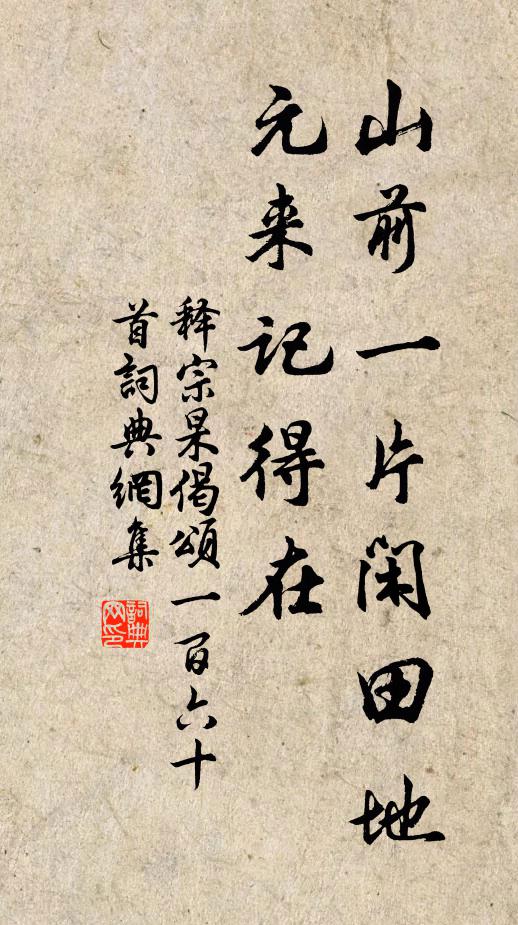 山前一片閑田地
元来记得在
释宗杲偈頌一百六十
首詞典網集
詞典
网印